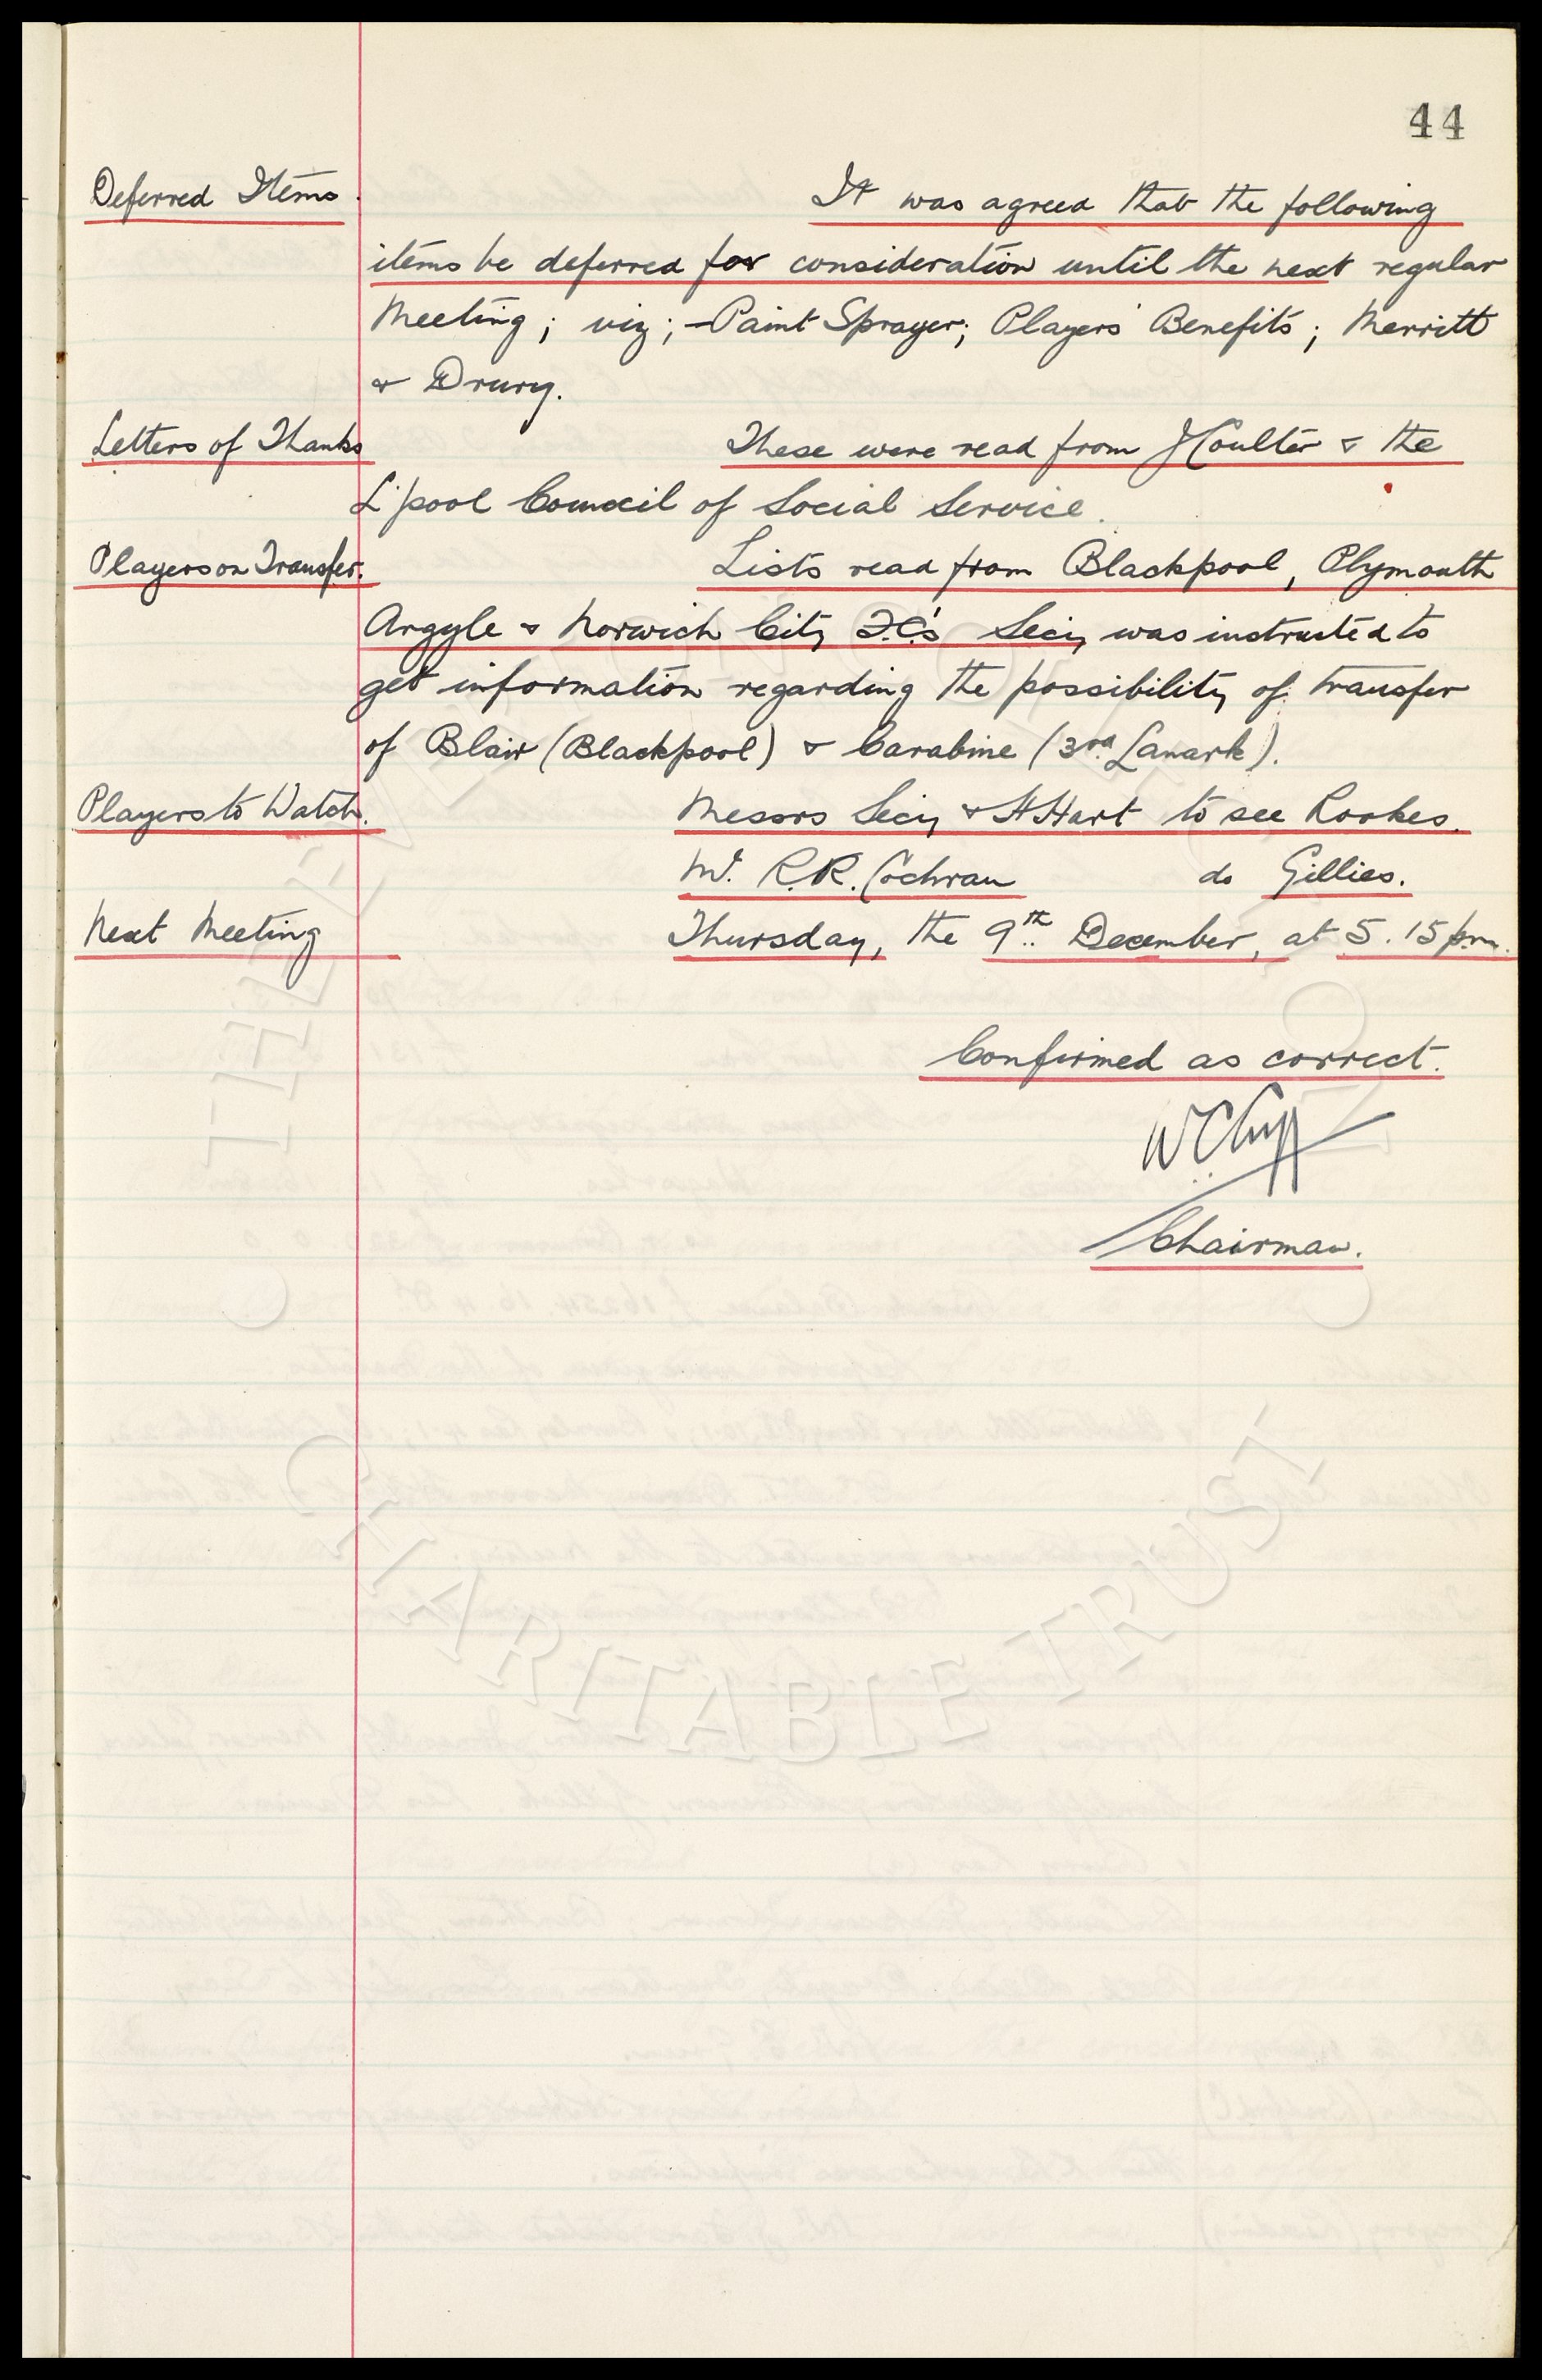 44
Deferred Items. It was agreed that the following
items be deferred for consideration until the next regular
Meeting; viz;- Paint Sprayer; Players' Benefits; Merritt
& Drury.
Letters of Thanks These were read from J Coulter & the
L'pool Council of Social Service.
Players on Transfer. Lists read from Blackpool, Plymouth
Argyle & Norwich City F.C's Secy was instructed to
get information regarding the possibility of transfer
of Blair (Blackpool) & Carabine (3rd Lanark).
Players to Watch. Messrs Secy & A Hart to see Rookes.
Mr. R.R. Cochran do Gillies.
Next Meeting Thursday, the 9th December, at 5.15 p.m.
Confirmed as correct.
W C Cuff
Chairman.
CHARITABLE TRUST